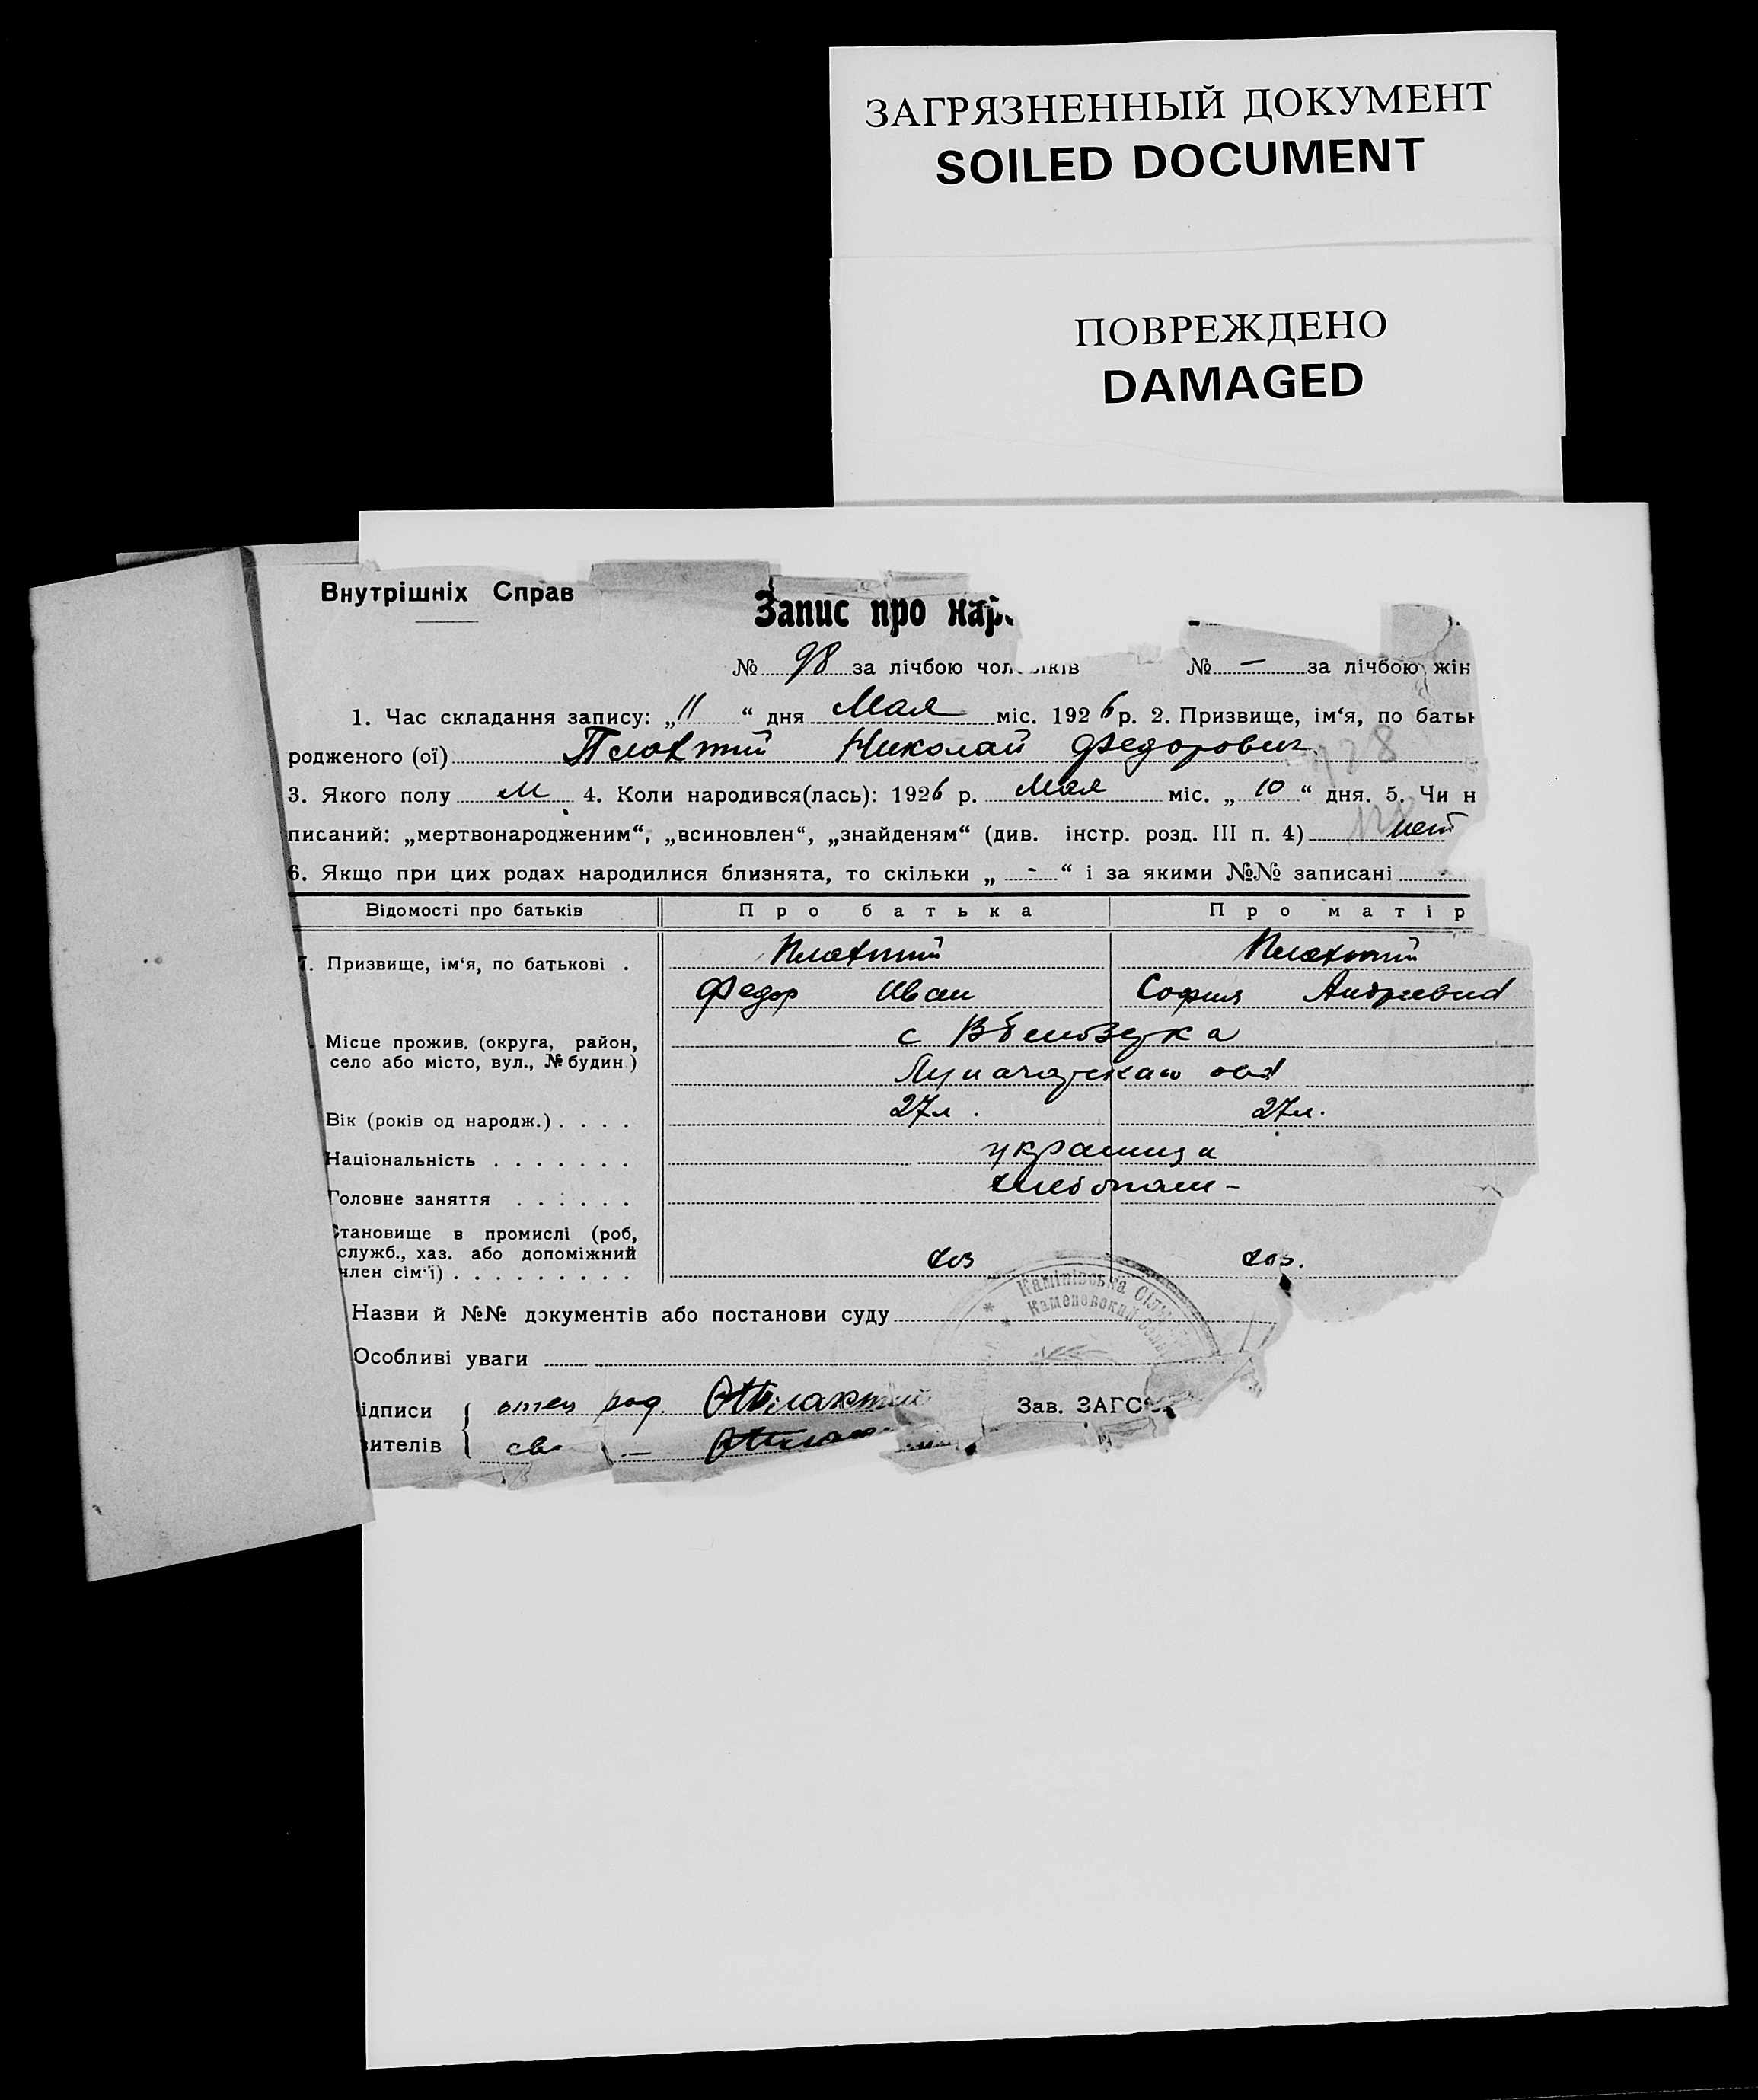 ЗАГРЯЗНЕННЫЙ ДОКУМЕНТ
SOILED DOCUMENT
ПОВРЕЖДЕНО
DAMAGED
Внутрішніх Справ
Запис про нар
№ 98 за лічбою чоловіків № — за лічбою жін
1. Час складання запису: „11“ дня Мая міс. 1926 р. 2. Призвище, ім‘я, по батьк
родженого (ої) Плахтий Николай Федорович
3. Якого полу м 4. Коли народився(лась): 1926 р. Мая міс. „10“ дня. 5. Чи н
писаний: „мертвонародженим“, „всиновлен“, „знайденям“ (див. інстр. розд. III п. 4) нет
6. Якщо при цих родах народилися близнята, то скільки „ - “ і за якими №№ записані -
Відомості про батьків Про батька Про матір
7. Призвище, ім‘я, по батькові . Плахтий Плахтий
Федор Иван София Андреевна
Місце прожив. (округа, район, с
село або місто, вул., № будин.)
Вік (років од народж.) . . . . 27л. 27л.
Національність . . . . . . . украинца
Головне заняття . . . . . . хлебопаш-
Становище в промислі (роб,
служб., хаз. або допоміжний хоз хоз.
член сім‘ї) . . . . . . . . .
Назви й №№ документів або постанови суду
Камінівська Сіль
Каменовский
Особливі уваги
ідписи отец род. Плахтий
вителів св — Зав. ЗАГС